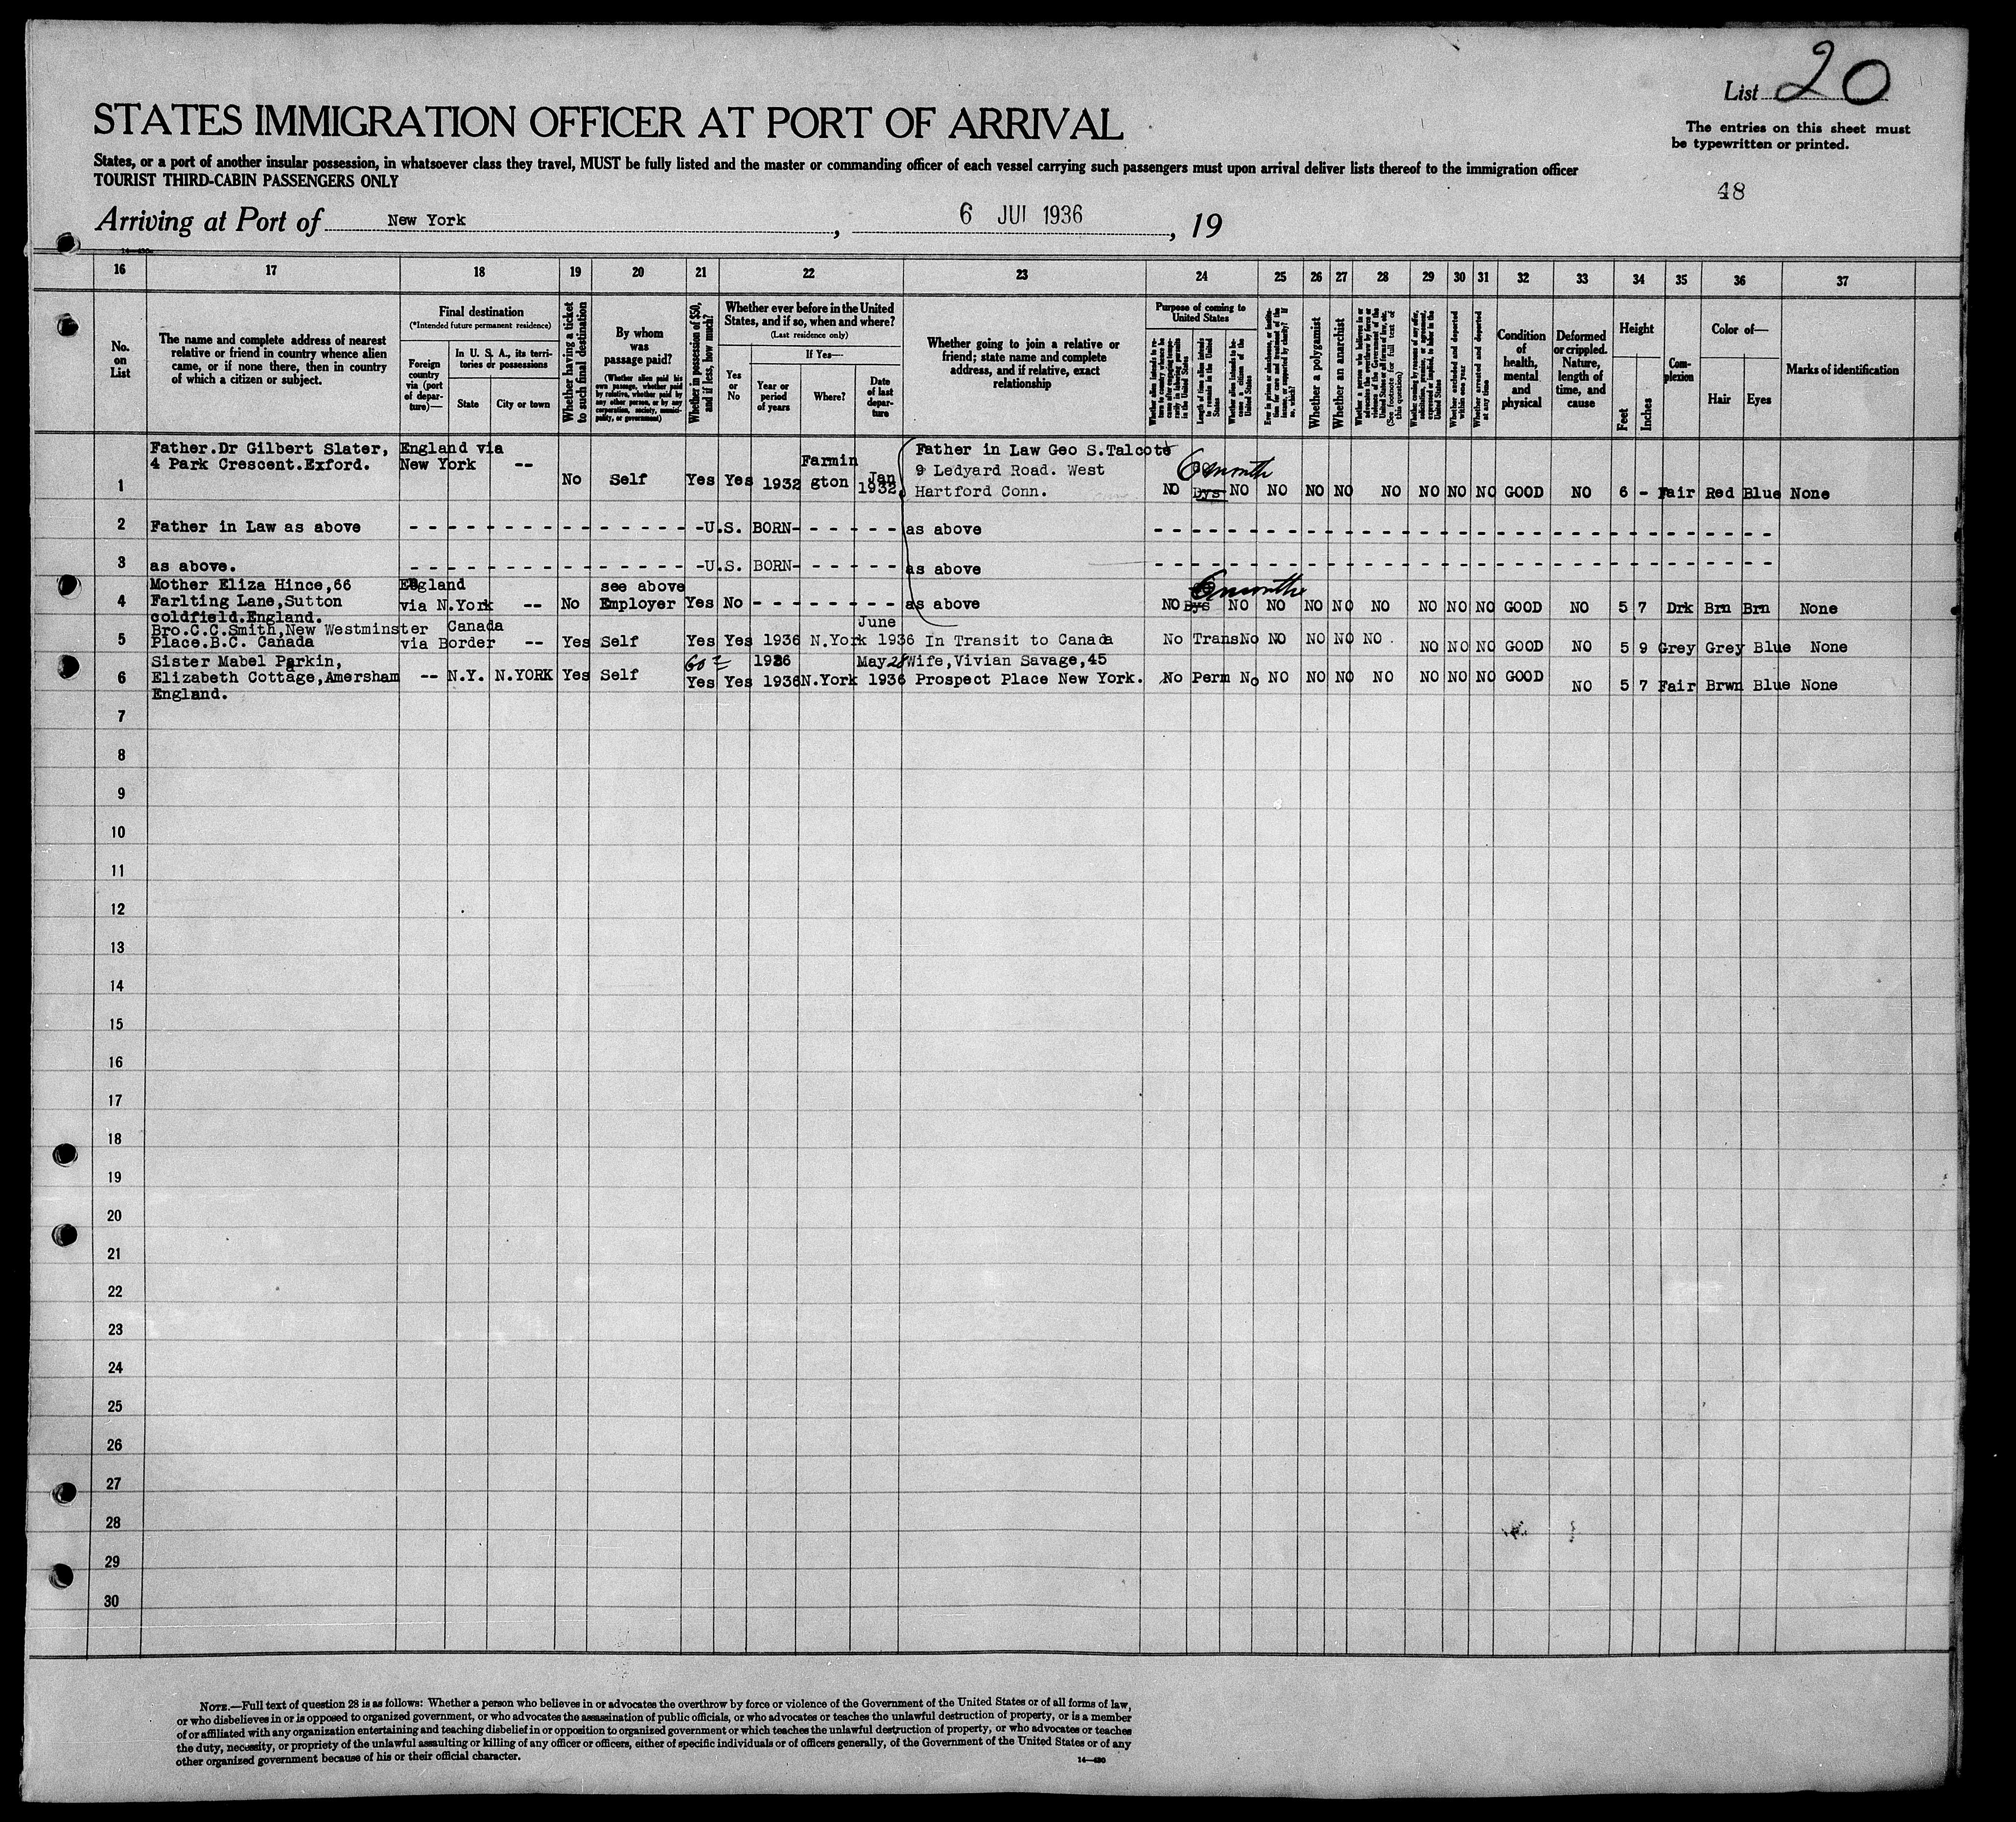 List 20
STATES IMMIGRATION OFFICER AT PORT OF ARRIVAL
The entries on this sheet must
be typewritten or printed.
States, or a port of another insular possession, in whatsoever class they travel, MUST be fully listed and the master or commanding officer of each vessel carrying such passengers must upon arrival deliver lists thereof to the immigration officer
TOURIST THIRD-CABIN PASSENGERS ONLY
48
Arriving at Port of New York, 6 JUl 1936, 19
16 17 18 19 20 21 22 23 24 25 26 27 28 29 30 31 32 33 34 35 36 37
No.
on
List
The name and complete address of nearest
relative or friend in country whence alien
came, or if none there, then in country
of which a citizen or subject.
Final destination
(*Intended future permanent residence)
Foreign
country
via (port
of depar-
ture)—
In U. S. A., its terri-
tories or possessions
State
City or town
Whether having a ticket
to such final destination
By whom
was
passage paid?
(Whether alien paid his
own passage, whether paid
by relative, whether paid by
any other person, or by any
corporation, society, munic-
ipality, or government)
Whether in possession of $50,
and if less, how much?
Whether ever before in the United
States, and if so, when and where?
(Last residence only)
Yes
or
No
If Yes—
Year or
period
of years
Where?
Date
of last
depar-
ture
Whether going to join a relative or
friend; state name and complete
address, and if relative, exact
relationship
Purpose of coming to
United States
Length of time alien intends
to remain in the United
States
Whether alien intends to be-
come a citizen of the
United States
Whether a polygamist
Whether an anarchist
(See footnote for full text of
this question)
Whether excluded and deported
within one year
Whether arrested and deported
at any time
Condition
of
health,
mental
and
physical
Deformed
or crippled.
Nature,
length of
time, and
cause
Height
Feet
Inches
Com-
plexion
Color of—
Hair
Eyes
Marks of identification
Father.Dr Gilbert Slater, England via Farmin Father in Law Geo S.Talcott
4 Park Crescent.Exford. New York -- 9 Ledyard Road. West 6 month
1 No Self Yes Yes 1932 gton Jan 1932 Hartford Conn. NO Dys NO NO NO NO NO NO NO NO GOOD NO 6 - Fair Red Blue None
2 Father in Law as above - - - - - - - - - - - - - - - - -U.S. BORN- - - - - - as above - - - - - - - - - - - - - - - - - - - -
3 as above. - - - - - - - - - - - - - - - - -U.S. BORN- - - - - - as above - - - - - - - - - - - - - - - - - - - -
Mother Eliza Hince,66 England see above 6 months
4 Farlting Lane,Sutton via N.York -- No Employer Yes No - - - - - - - - as above NO Dys NO NO NO NO NO NO NO NO GOOD NO 5 7 Drk Brn Brn None
coldfield.England.
Bro.C.C.Smith,New Westminster Canada June
5 Place.B.C. Canada via Border -- Yes Self Yes Yes 1936 N.York 1936 In Transit to Canada No Trans No NO NO NO NO NO NO NO GOOD NO 5 9 Grey Grey Blue None
Sister Mabel Parkin, 60 1926 May 28 Wife,Vivian Savage,45
6 Elizabeth Cottage,Amersham -- N.Y. N.YORK Yes Self Yes Yes 1936 N.York 1936 Prospect Place New York. No Perm No NO NO NO NO NO NO NO GOOD NO 5 7 Fair Brwn Blue None
England.
7
8
9
10
11
12
13
14
15
16
17
18
19
20
21
22
23
24
25
26
27
28
29
30
NOTE.—Full text of question 28 is as follows: Whether a person who believes in or advocates the overthrow by force or violence of the Government of the United States or of all forms of law,
or who disbelieves in or is opposed to organized government, or who advocates the assassination of public officials, or who advocates or teaches the unlawful destruction of property, or is a member
of or affiliated with any organization entertaining and teaching disbelief in or opposition to organized government or which teaches the unlawful destruction of property, or who advocates or teaches
the duty, necessity, or propriety of the unlawful assaulting or killing of any officer or officers, either of specific individuals or of officers generally, of the Government of the United States or of any
other organized government because of his or their official character.
14—430